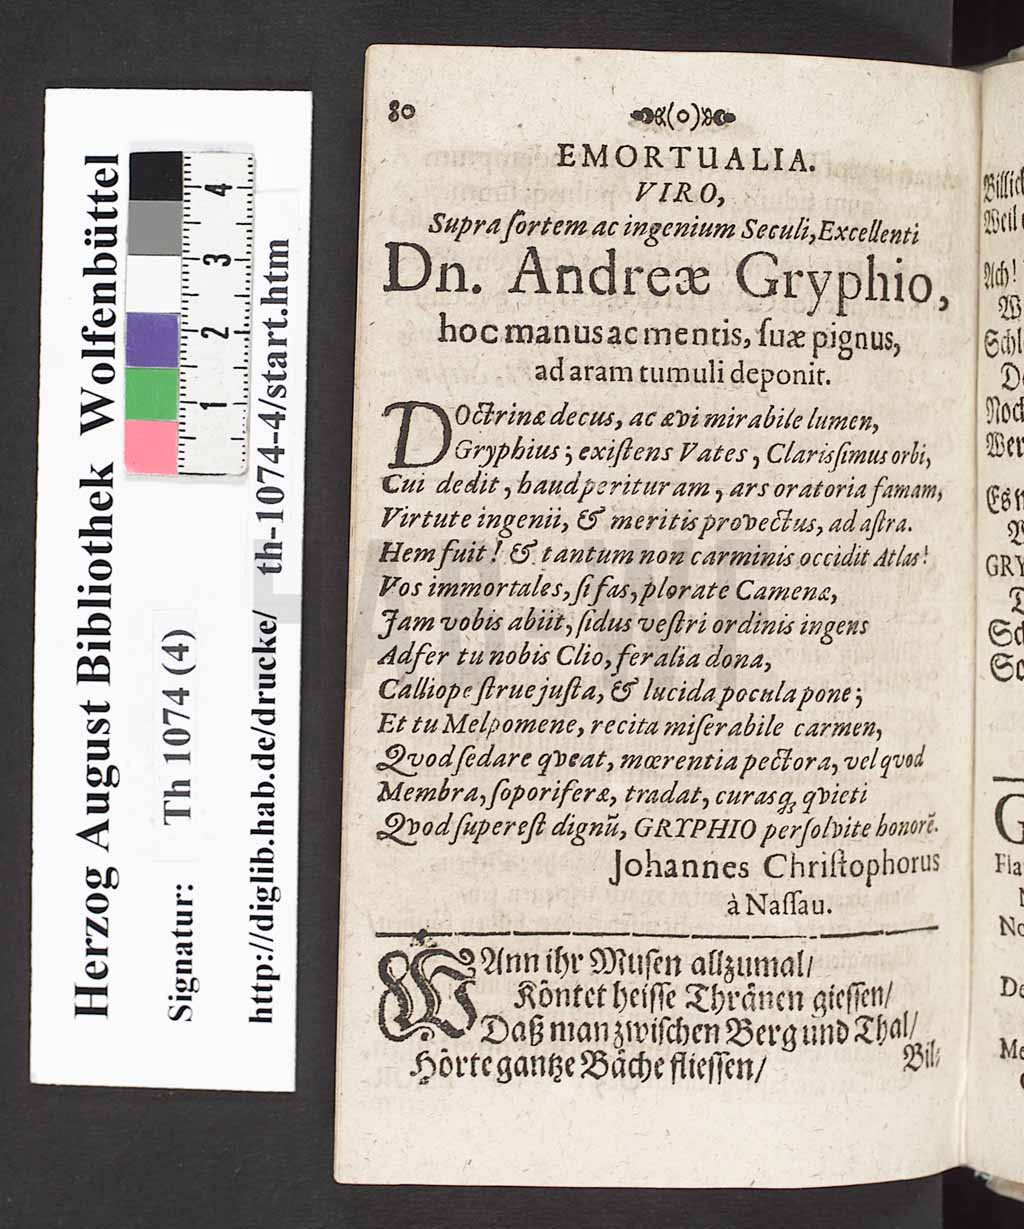 Herzog August Bibliothek Wolfenbüttel
Signatur: Th 1074 (4)
http://diglib.hab.de/drucke/ th-1074-4/start.htm
1 2 3 4
80
(o)
EMORTUALIA.
VIRO,
Supra ſortem ac ingenium Seculi, Excellenti
Dn. Andreæ Gryphio,
hoc manus ac mentis, ſuæ pignus,
ad aram tumuli deponit.
DOctrinæ decus, ac ævi mirabile lumen,
Gryphius; exiſtens Vates, Clarisſimus orbi,
Cui dedit, haud perituram, ars oratoria famam,
Virtute ingenii, & meritis provectus, ad aſtra.
Hem fuit! & tantum non carminis occidit Atlas!
Vos immortales, ſi fas, plorate Camenæ,
Jam vobis abiit, ſidus veſtri ordinis ingens
Adfer tu nobis Clio, feralia dona,
Calliope ſtrue juſta, & lucida pocula pone;
Et tu Melpomene, recita miſerabile carmen,
Qvod ſedare qveat, mœrentia pectora, vel qvod
Membra, ſoporiferæ, tradat, curasq; qvieti
Qvod ſupereſt dignũ, GRYPHIO perſolvite honorẽ.
Johannes Chriſtophorus
à Naſſau.
WAnn ihr Muſen allzumal/
Köntet heiſſe Thränen gieſſen/
Daß man zwiſchen Berg und Thal/
Hörte gantze Bäche flieſſen/
Bil⸗
Weil
Ach!
W
Schl
De
Noch
Wer
Es
GRY
Sc
Sc
G
Fla
No
De
Me